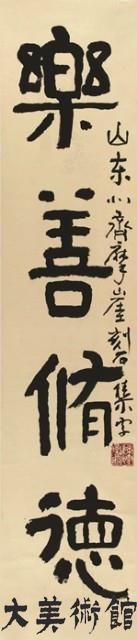 樂善脩德
山东北齐摩崖刻石集字
大美術館